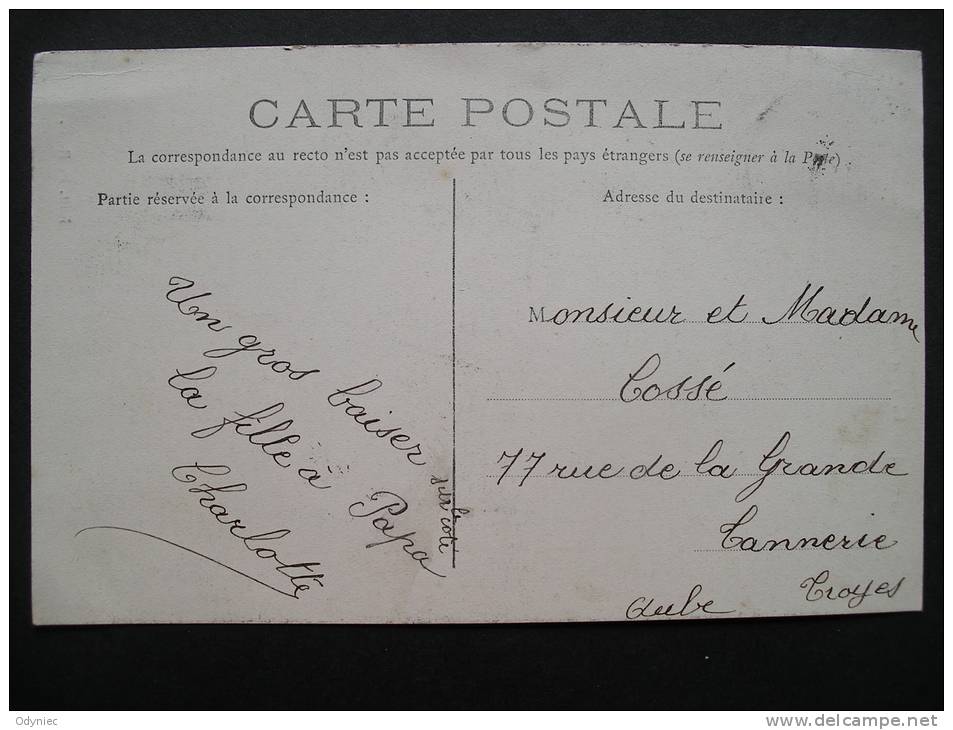 CARTE POSTALE
La correspondance au recto n'est pas acceptée par tous les pays étrangers (se renseigner à la Poste)
Partie réservée à la correspondance :
Un gros baiser
sur le coté
la fille à Papa
Charlotte
Adresse du destinataire :
Monsieur et Madame
Cossé
77 rue de la Grande
Tannerie
Troyes
Aube
Odyniec
www.delcampe.net